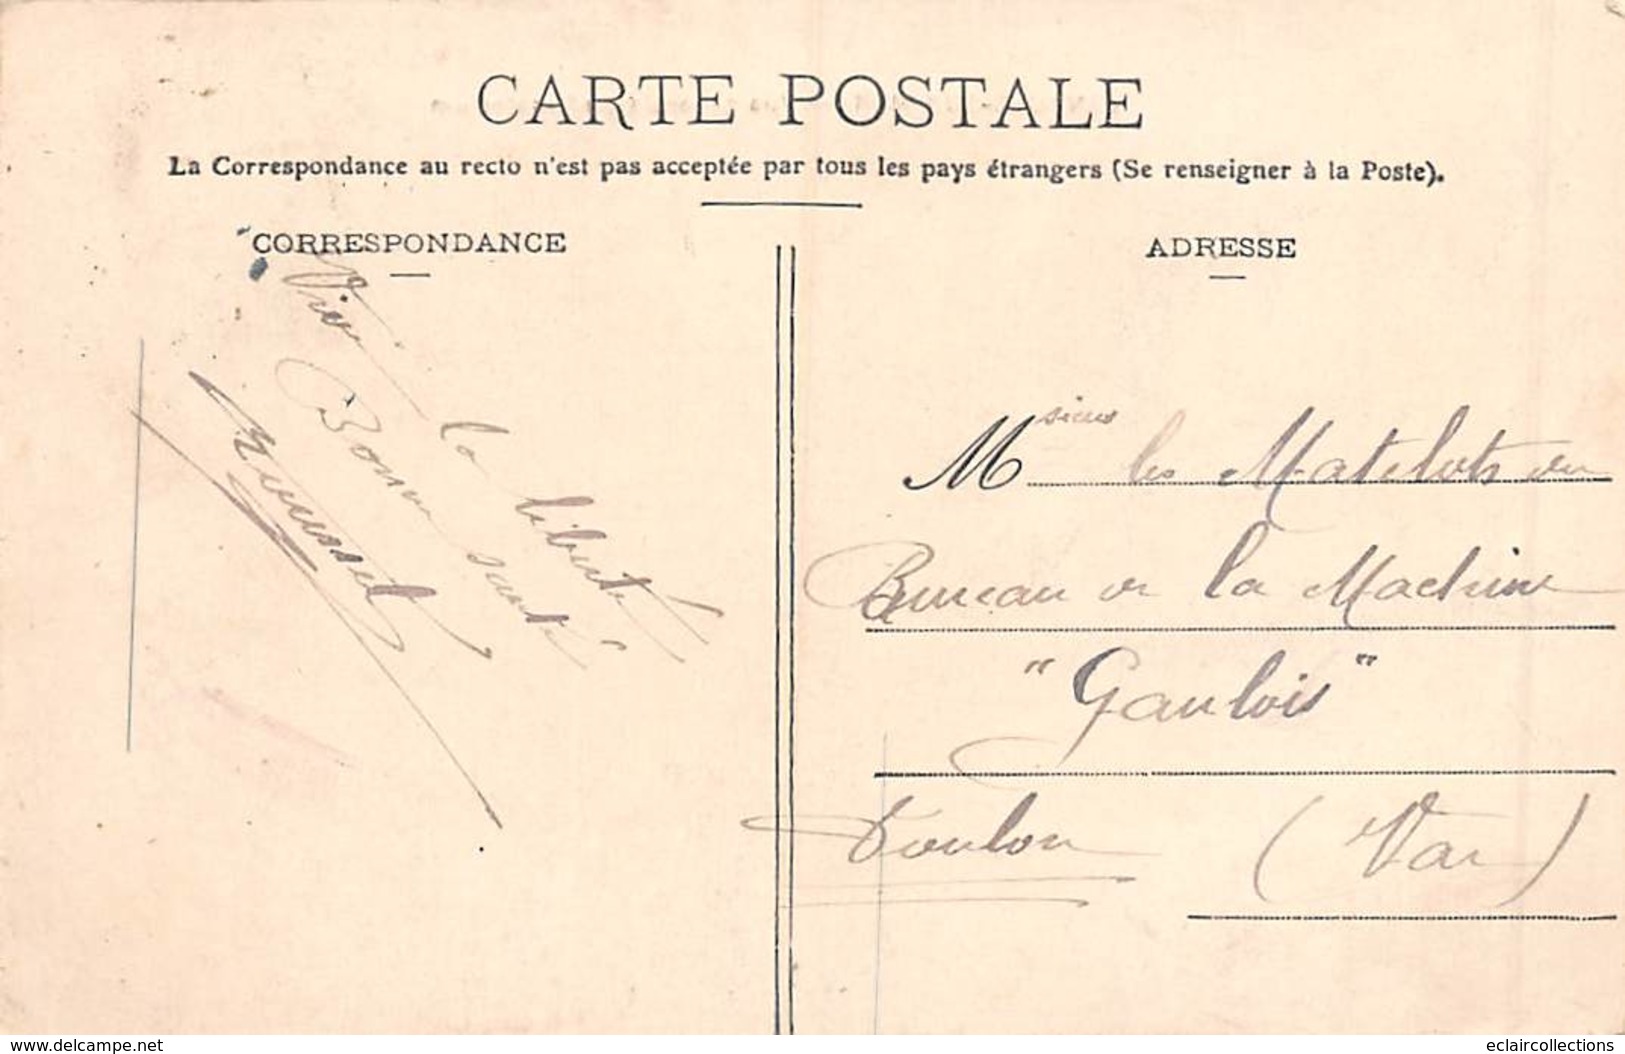 CARTE POSTALE
La Correspondance au recto n'est pas acceptée par tous les pays étrangers (Se renseigner à la Poste).
CORRESPONDANCE
Vive la liberté
Bonne santé
Roussel
ADRESSE
Msieurs les Matelots du
Bureau de la Machine
"Gaulois"
Toulon (Var)
www.delcampe.net
eclaircollections